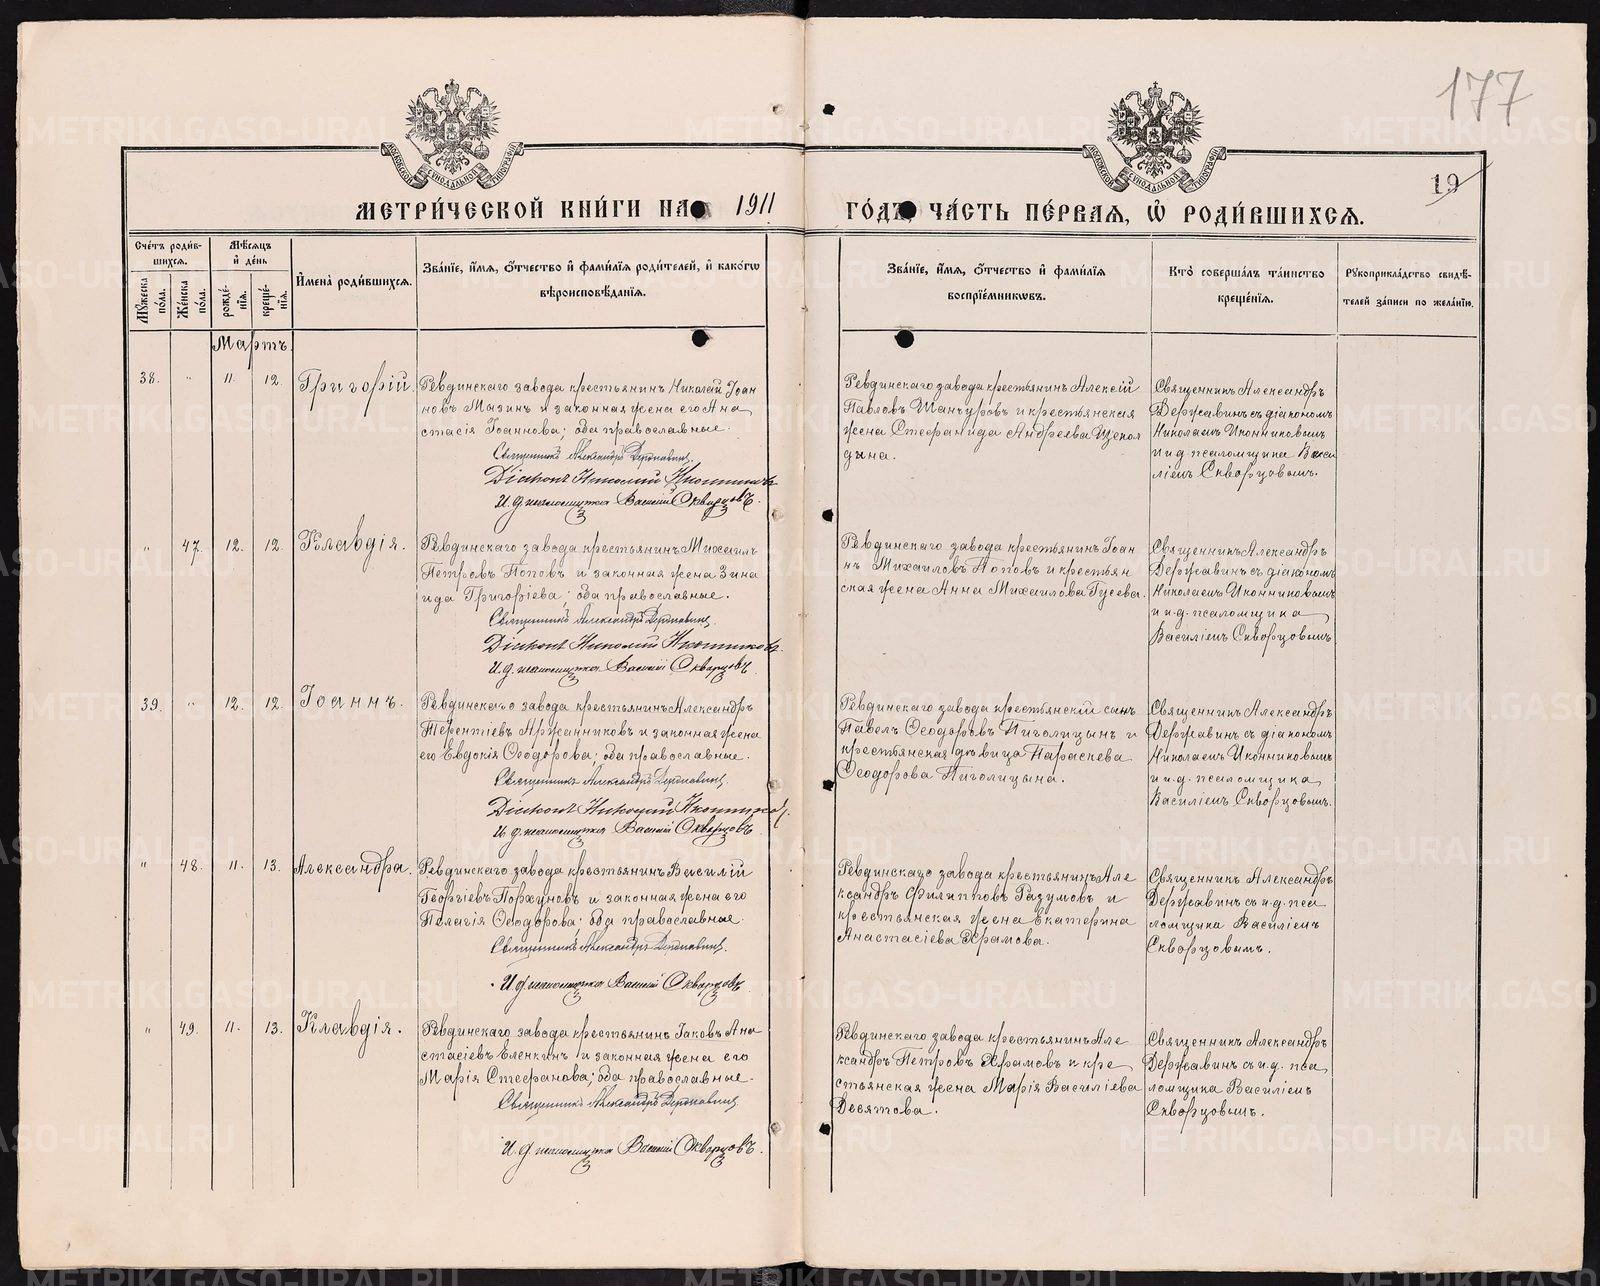 177
19
МЕТРИ́ЧЕСКОЙ КНИ́ГИ НА 1911 ГО́ДЪ, ЧА́СТЬ ПЕ́РВАѦ, Ѽ РОДИ́ВШИХСѦ.
Сче́тъ роди́вшихсѧ.
Мѣ́сѧцъ и҆ де́нь
Мꙋ́жеска по́ла.
Же́нска по́ла.
рожде́нїѧ.
креще́нїѧ.
И҆мена̀ роди́вшихсѧ.
Зва́нїе, и҆́мѧ, ѻ҆́тчество и҆ фами́лїѧ роди́телей, и҆ како́гѡ
вѣроисповѣ́данїѧ.
Зва́нїе, и҆́мѧ, ѻ҆́тчество и҆ фами́лїѧ
воспрїе́мникѡвъ.
Кто̀ соверша́лъ та́инство
креще́нїѧ.
Рꙋкоприкла́дство свидѣ́-
телей за́писи по жела́нїю.
Мартъ
38. " 11. 12. Григорій.
Ревдинскаго завода крестьянинъ Николай Іоан
новъ Мазинъ и законная жена его Ана
стасія Іоаннова; оба православные.
Священникъ Александръ Державинъ.
Діаконъ Николай Иконниковъ
И. д. псаломщика Василій Скварцовъ.
Ревдинскаго завода крестьянинъ Алексій
Павловъ Шанчуровъ и крестьянская
жена Стефанида Андреева Щекол
дина.
Священникъ Александръ
Державинъ съ діакономъ
Николаемъ Иконниковымъ
и и. д. псаломщика Васи
ліемъ Скворцовымъ.
" 47. 12. 12. Клавдія.
Ревдинскаго завода крестьянинъ Михаилъ
Петровъ Поповъ и законная жена Зина
ида Григоріева; оба православные.
Священникъ Александръ Державинъ.
Діаконъ Николай Иконниковъ.
И. д. псаломщика Василій Скварцовъ.
Ревдинскаго завода крестьянинъ Іоан
нъ Михаиловъ Поповъ и крестьян
ская жена Анна Михаилова Гусева.
Священникъ Александръ
Державинъ съ діакономъ
Николаемъ Иконниковымъ
и и. д. псаломщика
Василіемъ Скворцовымъ
39. " 12. 12. Іоаннъ.
Ревдинскаго завода крестьянинъ Александръ
Терентіевъ Аржанниковъ и законная жена
его Евдокія Ѳеодорова; оба православные.
Священникъ Александръ Державинъ.
Діаконъ Николай Иконниковъ.
И. д. псаломщика Василій Скварцовъ
Ревдинскаго завода крестьянскій сынъ
Павелъ Ѳеодоровъ Пиголицынъ и
крестьянская дѣвица Параскева
Ѳеодорова Пиголицына.
Священникъ Александръ
Державинъ съ діакономъ
Николаемъ Иконниковымъ
и и. д. псаломщика
Василіемъ Скворцовымъ.
" 48. 11. 13. Александра.
Ревдинскаго завода крестьянинъ Василій
Георгіевъ Порхуновъ и законная жена его
Пелагія Ѳеодорова; оба православные.
Священникъ Александръ Державинъ.
И. д. псаломщика Василій Скварцовъ
Ревдинскаго завода крестьянинъ Але
ксандръ Филипповъ Разумовъ и
крестьянская жена Екатерина
Анастасіева Храмова.
Священникъ Александръ
Державинъ съ и. д. пса
ломщика Василіемъ
Скворцовымъ.
" 49. 11. 13. Клавдія.
Ревдинскаго завода крестьянинъ Іаковъ Ана
стасіевъ Еленкинъ и законная жена его
Марія Стефанова; оба православные.
Священникъ Александръ Державинъ
И. д. псаломщика Василій Скварцовъ.
Ревдинскаго завода крестьянинъ Але
ксандръ Петровъ Храмовъ и кре
стьянская жена Марія Василіева
Десятова.
Священникъ Александръ
Державинъ съ и. д. пса
ломщика Василіемъ
Скворцовымъ.
METRIKI.GASO-URAL.RU